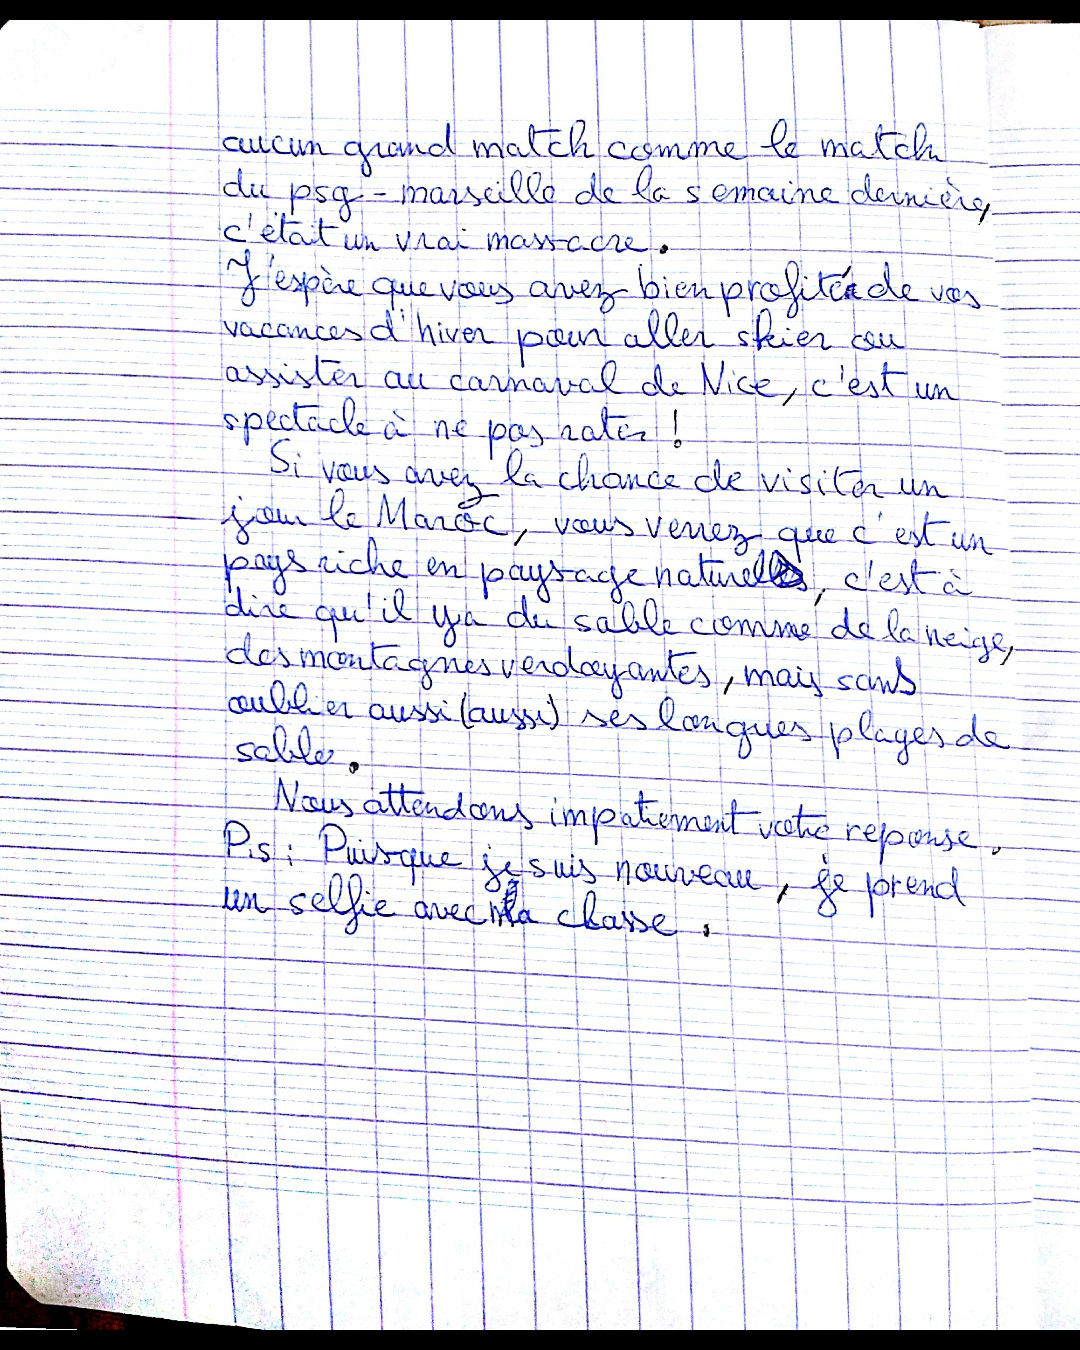 aucun grand match comme le match
du psg - marseille de la semaine dernière,
c'était un vrai massacre.
J'espère que vous avez bien profité de vos
vacances d'hiver pour aller skier ou
assister au carnaval de Nice, c'est un
spectacle à ne pas rater !
Si vous avez la chance de visiter un
jour le Maroc, vous verrez que c'est un
pays riche en paysage naturel, c'est à
dire qu'il ya du sable comme de la neige,
des montagnes verdoyantes, mais sans
oublier aussi (aussi) ses longues plages de
sable.
Nous attendons impatiement votre reponse.
P.s : Puisque je suis nouveau, je prend
un selfie avec la classe.